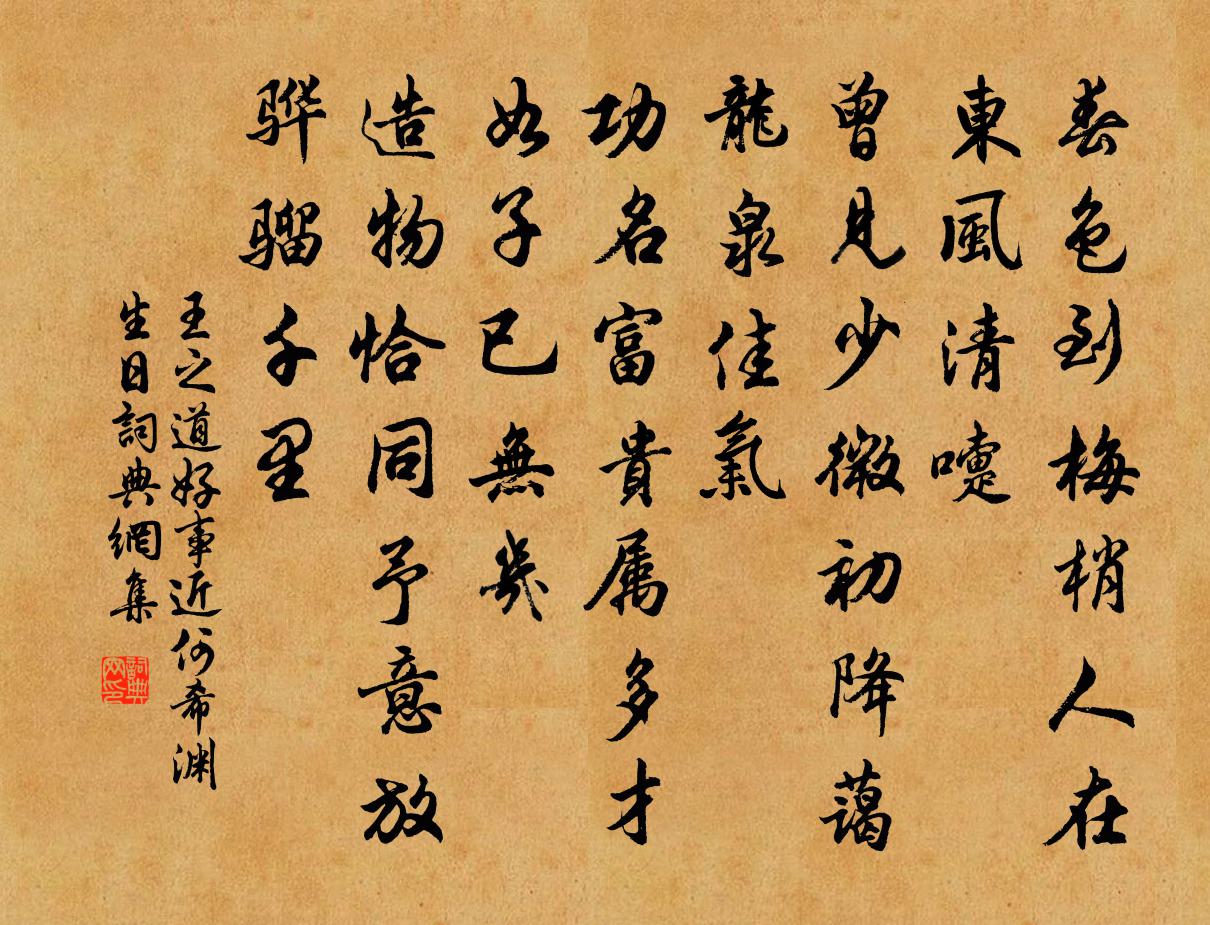 春色到梅梢人在
東風清嚏
曾見少微初降藹
龍泉佳氣
功名富貴属多才
如子已無幾
造物恰同予意放
骅騮千里
王之道好事近何希渊
生日詞典網集
詞典网印